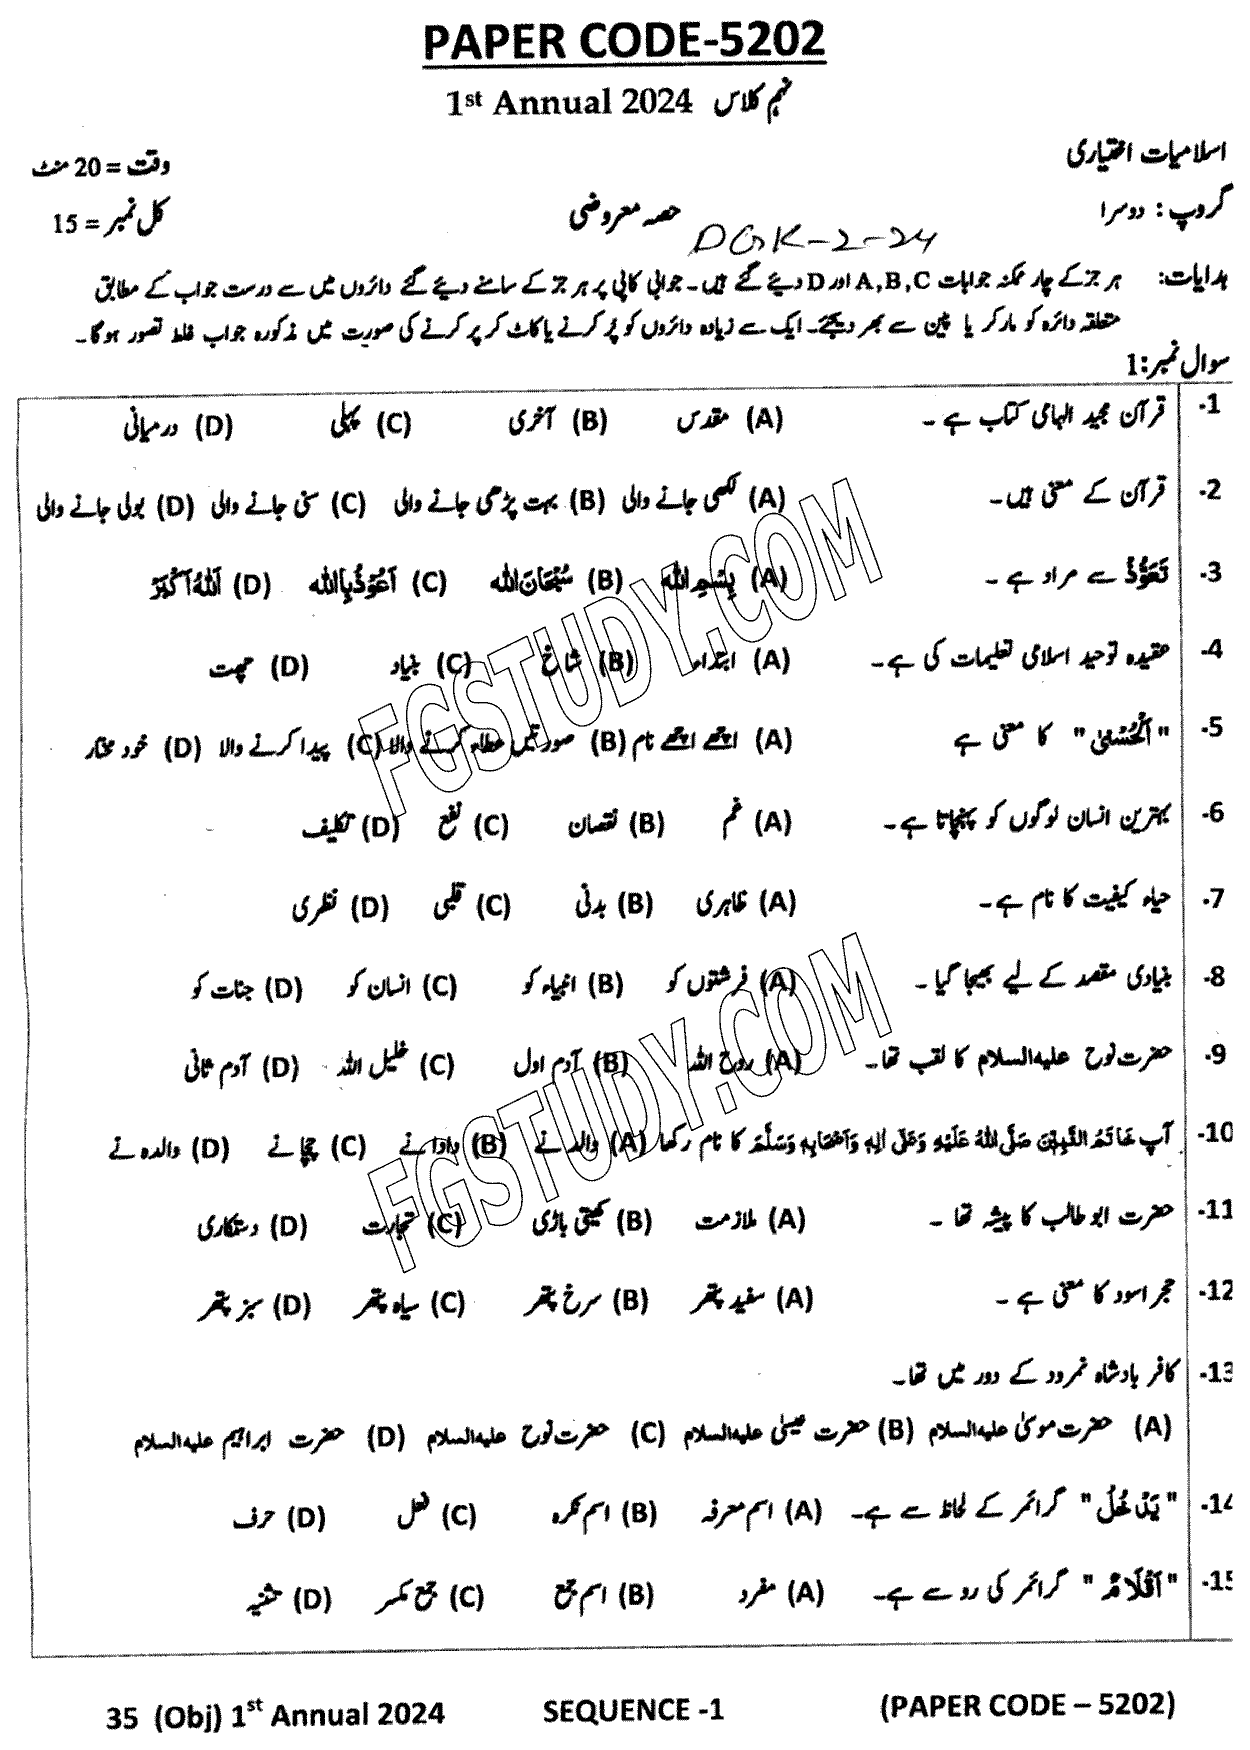 PAPER CODE-5202
1st Annual 2024 نہم کلاس
اسلامیات اختیاری
وقت = 20 منٹ
گروپ: دوسرا
حصہ معروضی
کل نمبر = 15
DGK-2-24
ہدایات: ہر جز کے چار ممکنہ جوابات A,B,C اور D دیئے گئے ہیں۔ جوابی کاپی پر ہر جز کے سامنے دیئے گئے دائروں میں سے درست جواب کے مطابق
متعلقہ دائرہ کو مارکر یا پین سے بھر دیجئے۔ ایک سے زیادہ دائروں کو پُر کرنے یا کاٹ کر پر کرنے کی صورت میں مذکورہ جواب غلط تصور ہوگا۔
سوال نمبر:1
1- قرآن مجید الہامی کتاب ہے ۔ (A) مقدس (B) آخری (C) پہلی (D) درمیانی
2- قرآن کے معنی ہیں۔ (A) لکھی جانے والی (B) بہت پڑھی جانے والی (C) سنی جانے والی (D) بولی جانے والی
3- تَعَوُّذْ سے مراد ہے ۔ (A) بِسْمِ اللہ (B) سُبْحَانَ اللہ (C) اَعُوْذُ بِاللہ (D) اَللہُ اَکْبَرْ
4- عقیدہ توحید اسلامی تعلیمات کی ہے۔ (A) ابتداء (B) شاخ (C) بنیاد (D) چھت
5- "اَلْحُسْنٰی" کا معنی ہے (A) اچھے اچھے نام (B) صورتیں عطا کرنے والا (C) پیدا کرنے والا (D) خود مختار
6- بہترین انسان لوگوں کو پہنچاتا ہے۔ (A) غم (B) نقصان (C) نفع (D) تکلیف
7- حیاء کیفیت کا نام ہے۔ (A) ظاہری (B) بدنی (C) قلبی (D) نظری
8- بنیادی مقصد کے لیے بھیجا گیا ۔ (A) فرشتوں کو (B) انبیاء کو (C) انسان کو (D) جنات کو
9- حضرت نوح علیہ السلام کا لقب تھا۔ (A) روح اللہ (B) آدم اول (C) خلیل اللہ (D) آدم ثانی
10- آپ خَاتَمُ النَّبِیّٖنَ صَلَّی اللہُ عَلَیْہِ وَعَلٰی اٰلِہٖ وَاَصْحَابِہٖ وَسَلَّمَ کا نام رکھا (A) والد نے (B) دادا نے (C) چچا نے (D) والدہ نے
11- حضرت ابو طالب کا پیشہ تھا ۔ (A) ملازمت (B) کھیتی باڑی (C) تجارت (D) دستکاری
12- حجر اسود کا معنی ہے ۔ (A) سفید پتھر (B) سرخ پتھر (C) سیاہ پتھر (D) سبز پتھر
13- کافر بادشاہ نمرود کے دور میں تھا۔
(A) حضرت موسیٰ علیہ السلام (B) حضرت عیسیٰ علیہ السلام (C) حضرت نوح علیہ السلام (D) حضرت ابراہیم علیہ السلام
14- "یَدْخُلُ" گرائمر کے لحاظ سے ہے۔ (A) اسم معرفہ (B) اسم نکرہ (C) فعل (D) حرف
15- "اَقْلَامٌ" گرائمر کی رو سے ہے۔ (A) مفرد (B) اسم جمع (C) جمع مکسر (D) تثنیہ
FGSTUDY.COM
FGSTUDY.COM
35 (Obj) 1st Annual 2024 SEQUENCE -1 (PAPER CODE – 5202)